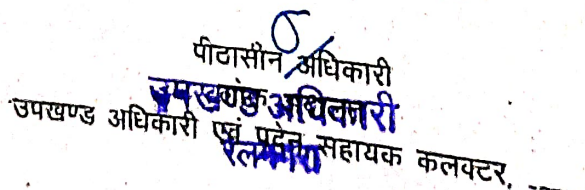 पीठासीन अधिकारी
उपखण्ड अधिकारी
उपखण्ड अधिकारी एवं पदेन सहायक कलक्टर,